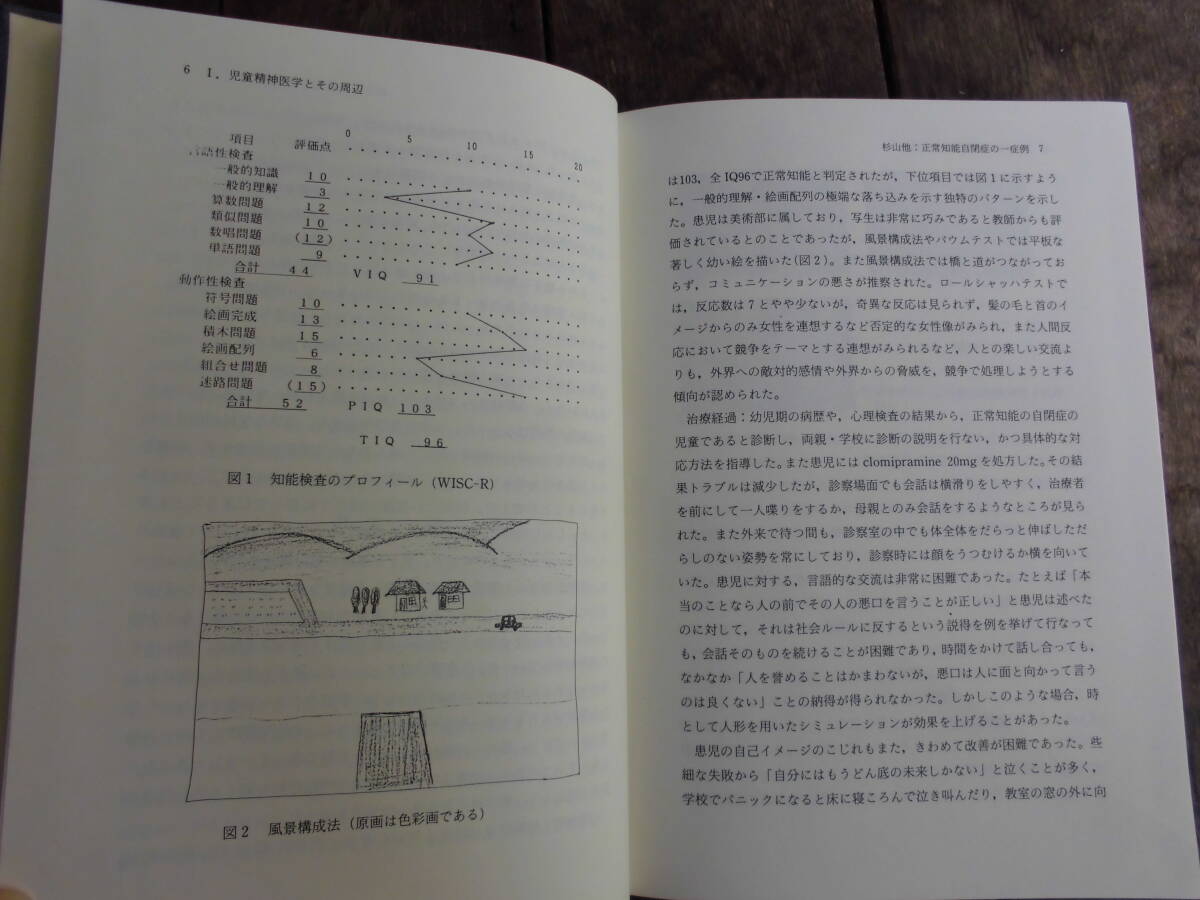 6 I．児童精神医学とその周辺
項目 評価点 0 5 10 15 20
言語性検査
一般的知識 10
一般的理解 3
算数問題 12
類似問題 10
数唱問題 (12)
単語問題 9
合計 44 VIQ 91
動作性検査
符号問題 10
絵画完成 13
積木問題 15
絵画配列 6
組合せ問題 8
迷路問題 (15)
合計 52 PIQ 103
TIQ 96
図1 知能検査のプロフィール（WISC-R）
図2 風景構成法（原画は色彩画である）
杉山他：正常知能自閉症の一症例 7
は103，全IQ96で正常知能と判定されたが，下位項目では図1に示すよう
に，一般的理解・絵画配列の極端な落ち込みを示す独特のパターンを示し
た。患児は美術部に属しており，写生は非常に巧みであると教師からも評
価されているとのことであったが，風景構成法やバウムテストでは平板な
著しく幼い絵を描いた（図2）。また風景構成法では橋と道がつながってお
らず，コミュニケーションの悪さが推察された。ロールシャッハテストで
は，反応数は7とやや少ないが，奇異な反応は見られず，髪の毛と首のイ
メージからのみ女性を連想するなど否定的な女性像がみられ，また人間反
応において競争をテーマとする連想がみられるなど，人との楽しい交流よ
りも，外界への敵対的感情や外界からの脅威を，競争で処理しようとする
傾向が認められた。
治療経過：幼児期の病歴や，心理検査の結果から，正常知能の自閉症の
児童であると診断し，両親・学校に診断の説明を行ない，かつ具体的な対
応方法を指導した。また患児にはclomipramine 20mgを処方した。その結
果トラブルは減少したが，診察場面でも会話は横滑りをしやすく，治療者
を前にして一人喋りをするか，母親とのみ会話をするようなところが見ら
れた。また外来で待つ間も，診察室の中でも体全体をだらっと伸ばしただ
らしのない姿勢を常にしており，診察時には顔をうつむけるか横を向いて
いた。患児に対する，言語的な交流は非常に困難であった。たとえば「本
当のことなら人の前でその人の悪口を言うことが正しい」と患児は述べた
のに対して，それは社会ルールに反するという説得を例を挙げて行なって
も，会話そのものを続けることが困難であり，時間をかけて話し合っても，
なかなか「人を誉めることはかまわないが，悪口は人に面と向かって言う
のは良くない」ことの納得が得られなかった。しかしこのような場合，時
として人形を用いたシミュレーションが効果を上げることがあった。
患児の自己イメージのこじれもまた，きわめて改善が困難であった。些
細な失敗から「自分にはもうどん底の未来しかない」と泣くことが多く，
学校でパニックになると床に寝ころんで泣き叫んだり，教室の窓の外に向